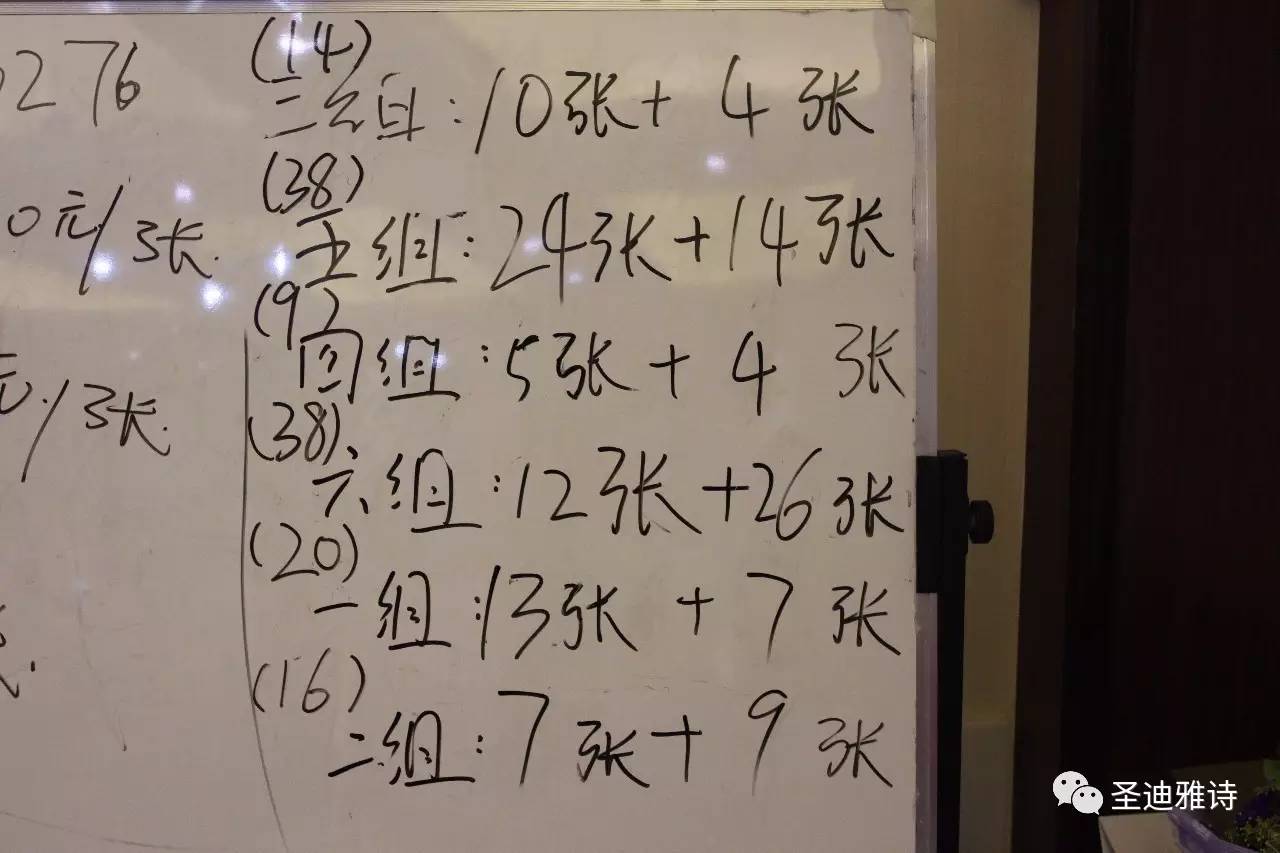 276
0元/张.
元/张.
(14)
三组:10张+4张
(38)
五组:24张+14张
(9)
四组:5张+4张
(38)
六组:12张+26张
(20)
一组:13张+7张
(16)
二组:7张+9张
圣迪雅诗